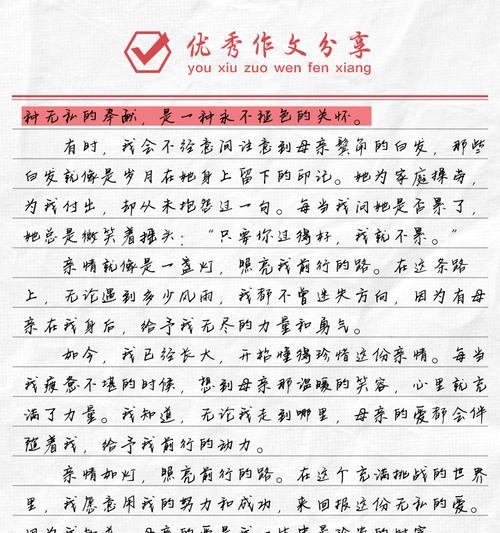 优秀作文分享
you xiu zuo wen fen xiang
种无私的奉献，是一种永不褪色的关怀。
有时，我会不经意间注意到母亲鬓角的白发，那些
白发就像是岁月在她身上留下的印记。她为家庭操劳，
为我付出，却从未抱怨过一句。每当我问她是否累了，
她总是微笑着摇头：“只要你过得好，我就不累。”
亲情就像是一盏灯，照亮我前行的路。在这条路
上，无论遇到多少风雨，我都不曾迷失方向，因为有母
亲在我身后，给予我无尽的力量和勇气。
如今，我已经长大，开始懂得珍惜这份亲情。每当
我疲惫不堪的时候，想到母亲那温暖的笑容，心里就充
满了力量。我知道，无论我走到哪里，母亲的爱都会伴
随着我，给予我前行的动力。
亲情如灯，照亮前行的路。在这个充满挑战的世界
里，我愿意用我的努力和成功，来回报这份无私的爱。
因为我知道，母亲的爱是我一生中最珍贵的财富